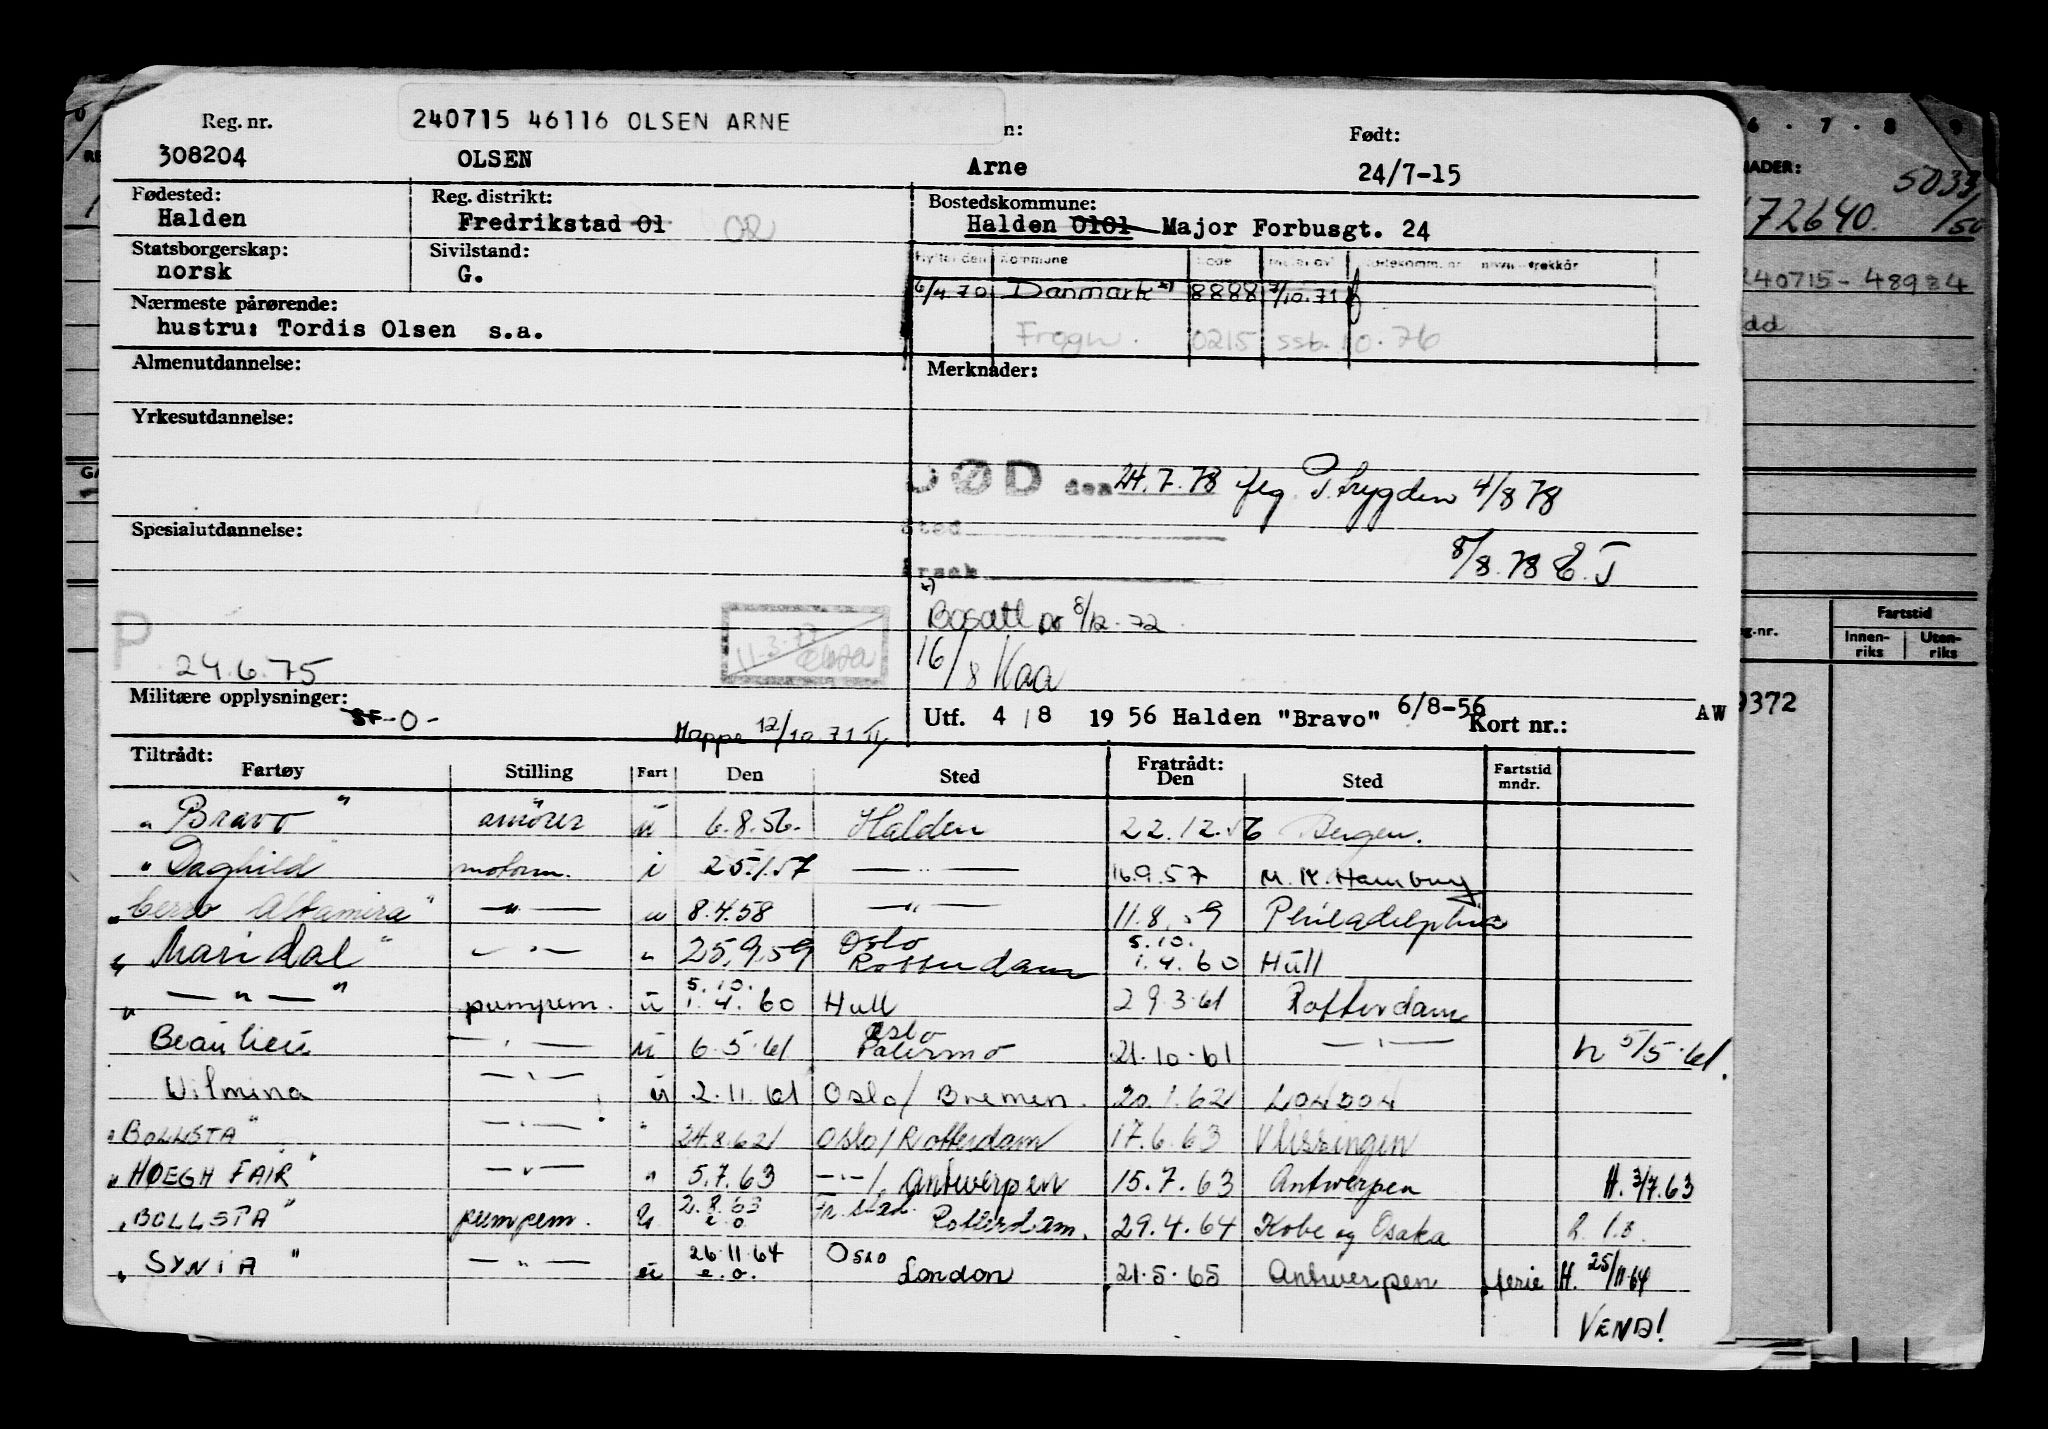 240715 46116 OLSEN ARNE
Reg. nr. n: Født:
308204 OLSEN Arne 24/7-15
Fødested: Reg. distrikt: Bostedskommune:
Halden Fredrikstad 01 02 Halden 0101 Major Forbusgt. 24
Statsborgerskap: Sivilstand:
norsk G.
6/4.70 Danmark x) 8888 7/10.71
Nærmeste pårørende:
hustru: Tordis Olsen s.a.
Frogn. 0215 ssb. 10.76
Almenutdannelse: Merknader:
Yrkesutdannelse:
DØD den 24.7.78 flg. P. Trygden 4/8 78
Spesialutdannelse: Sted
8/8.78 E.J
Årsak
x) Bosatt 8/12.72
P. 24.6.75 11.3.77
16/8 Kaa
Militære opplysninger:
SF-0-
Mappe 12/10.71
Utf. 4/8 1956 Halden "Bravo" 6/8-56 Kort nr.: AW
Tiltrådt: Fratrådt:
Fartøy Stilling Fart Den Sted Den Sted Fartstid mndr.
"Bravo" smører u 6.8.56. Halden 22.12.56 Bergen.
"Daghild motorm. i 25.1.57 —"— 16.9.57 M.K. Hamburg
"Cerro Altamira" —"— u 8.4.58 —"— 11.8.59 Philadelphia
"Maridal" —"— " 25.9.59 Oslo Rotterdam 5.10. 1.4.60 Hull
"—"—" pumpem. u 5.10. 1.4.60 Hull 29.3.61 Rotterdam
Beaulieu —"— u 6.5.61 Oslo Palermo 21.10.61 —"— h 5/5.61.
Vilmina —"— u 2.11.61 Oslo/Bremen. 20.1.62 London
"BOLLSTA" —"— " 24.8.62 Oslo/Rotterdam 17.6.63 Vlissingen
"HØEGH FAIR" —"— " 5.7.63 —"—/. Antwerpen 15.7.63 Antwerpen H. 3/7.63
"BOLLSTA" pumpem. u. 2.8.63 e.o. Fr.stad. Rotterdam. 29.4.64 Kobe og Osaka h. 1.8.
"SYNIA" —"— u 26.11.64 e.o. Oslo London 21.5.65 Antwerpen ferie H. 25/11.64
VEND!
6 . 7 . 8 9
NADER:
5033/50
172640.
240715-48934
dd
Fartstid
g.nr. Innen-riks Uten-riks
9372